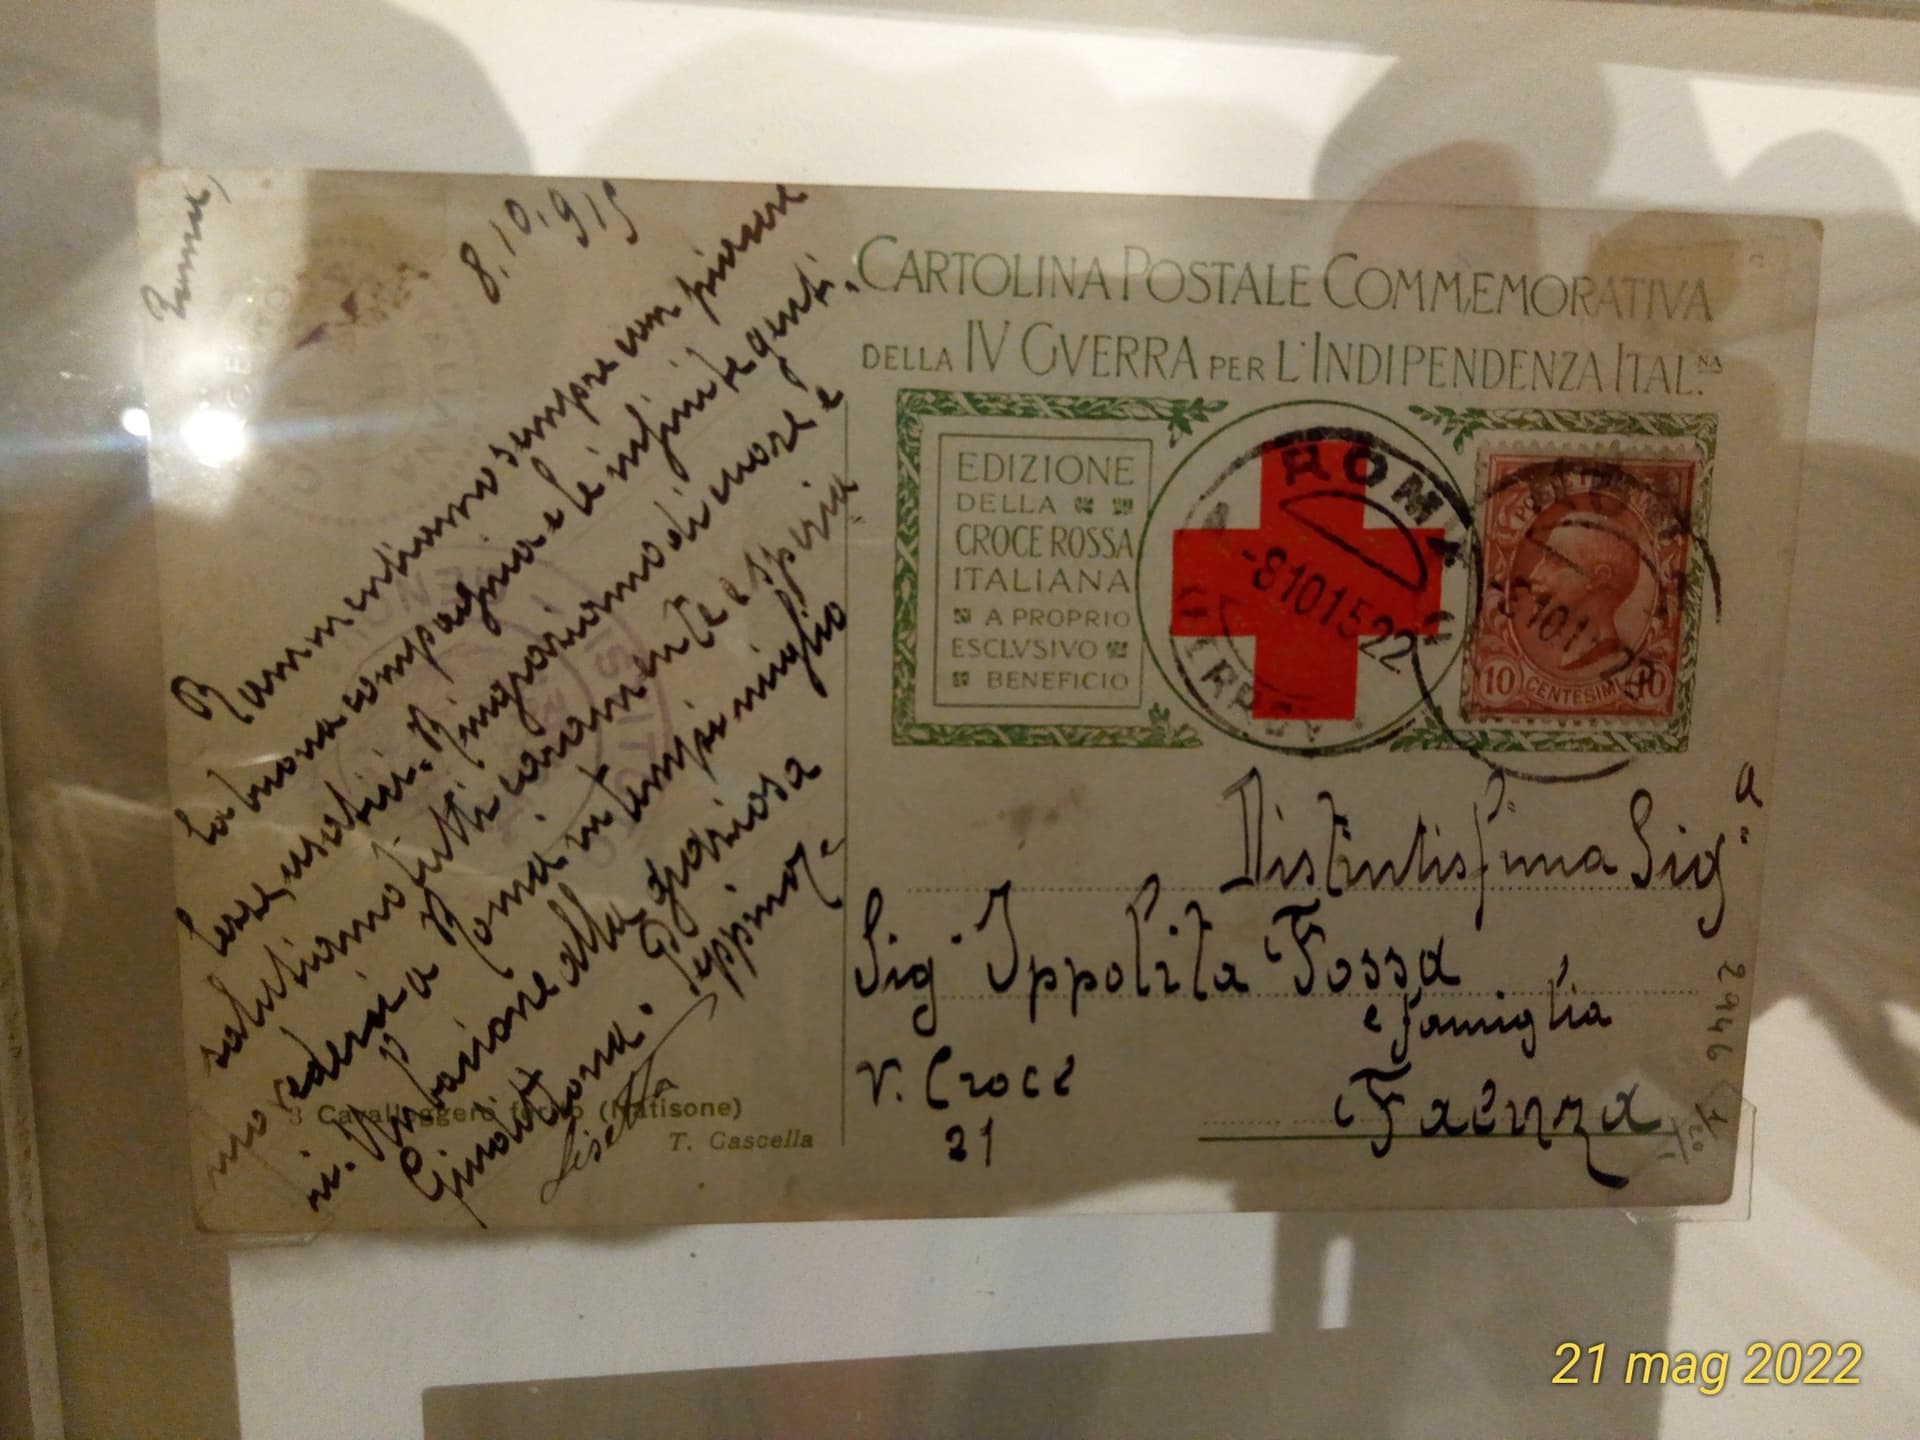 Roma,
8.10.915
Rammentiamo sempre con piacere
la buona compagnia e le infinite genti-
lezze usateci. Ringraziamo di cuore e
salutiamo tutti caramente e speria
mo vederci a Roma in tempi miglio
ri. Un bacione alla graziosa
Ginola
Lisetta
Peppino
3 Cavalleggero ferito (Natisone)
T. Cascella
CARTOLINA POSTALE COMMEMORATIVA
DELLA IV GVERRA PER L'INDIPENDENZA ITAL.NA
EDIZIONE
DELLA
CROCE ROSSA
ITALIANA
A PROPRIO
ESCLVSIVO
BENEFICIO
ROMA
-8 10 15 22
POSTE ITALIANE
10 CENTESIMI 10
Distintissima Sig.a
Sig. Ippolita Fossa
e famiglia
V. Croce
21
Faenza
2946
21 mag 2022